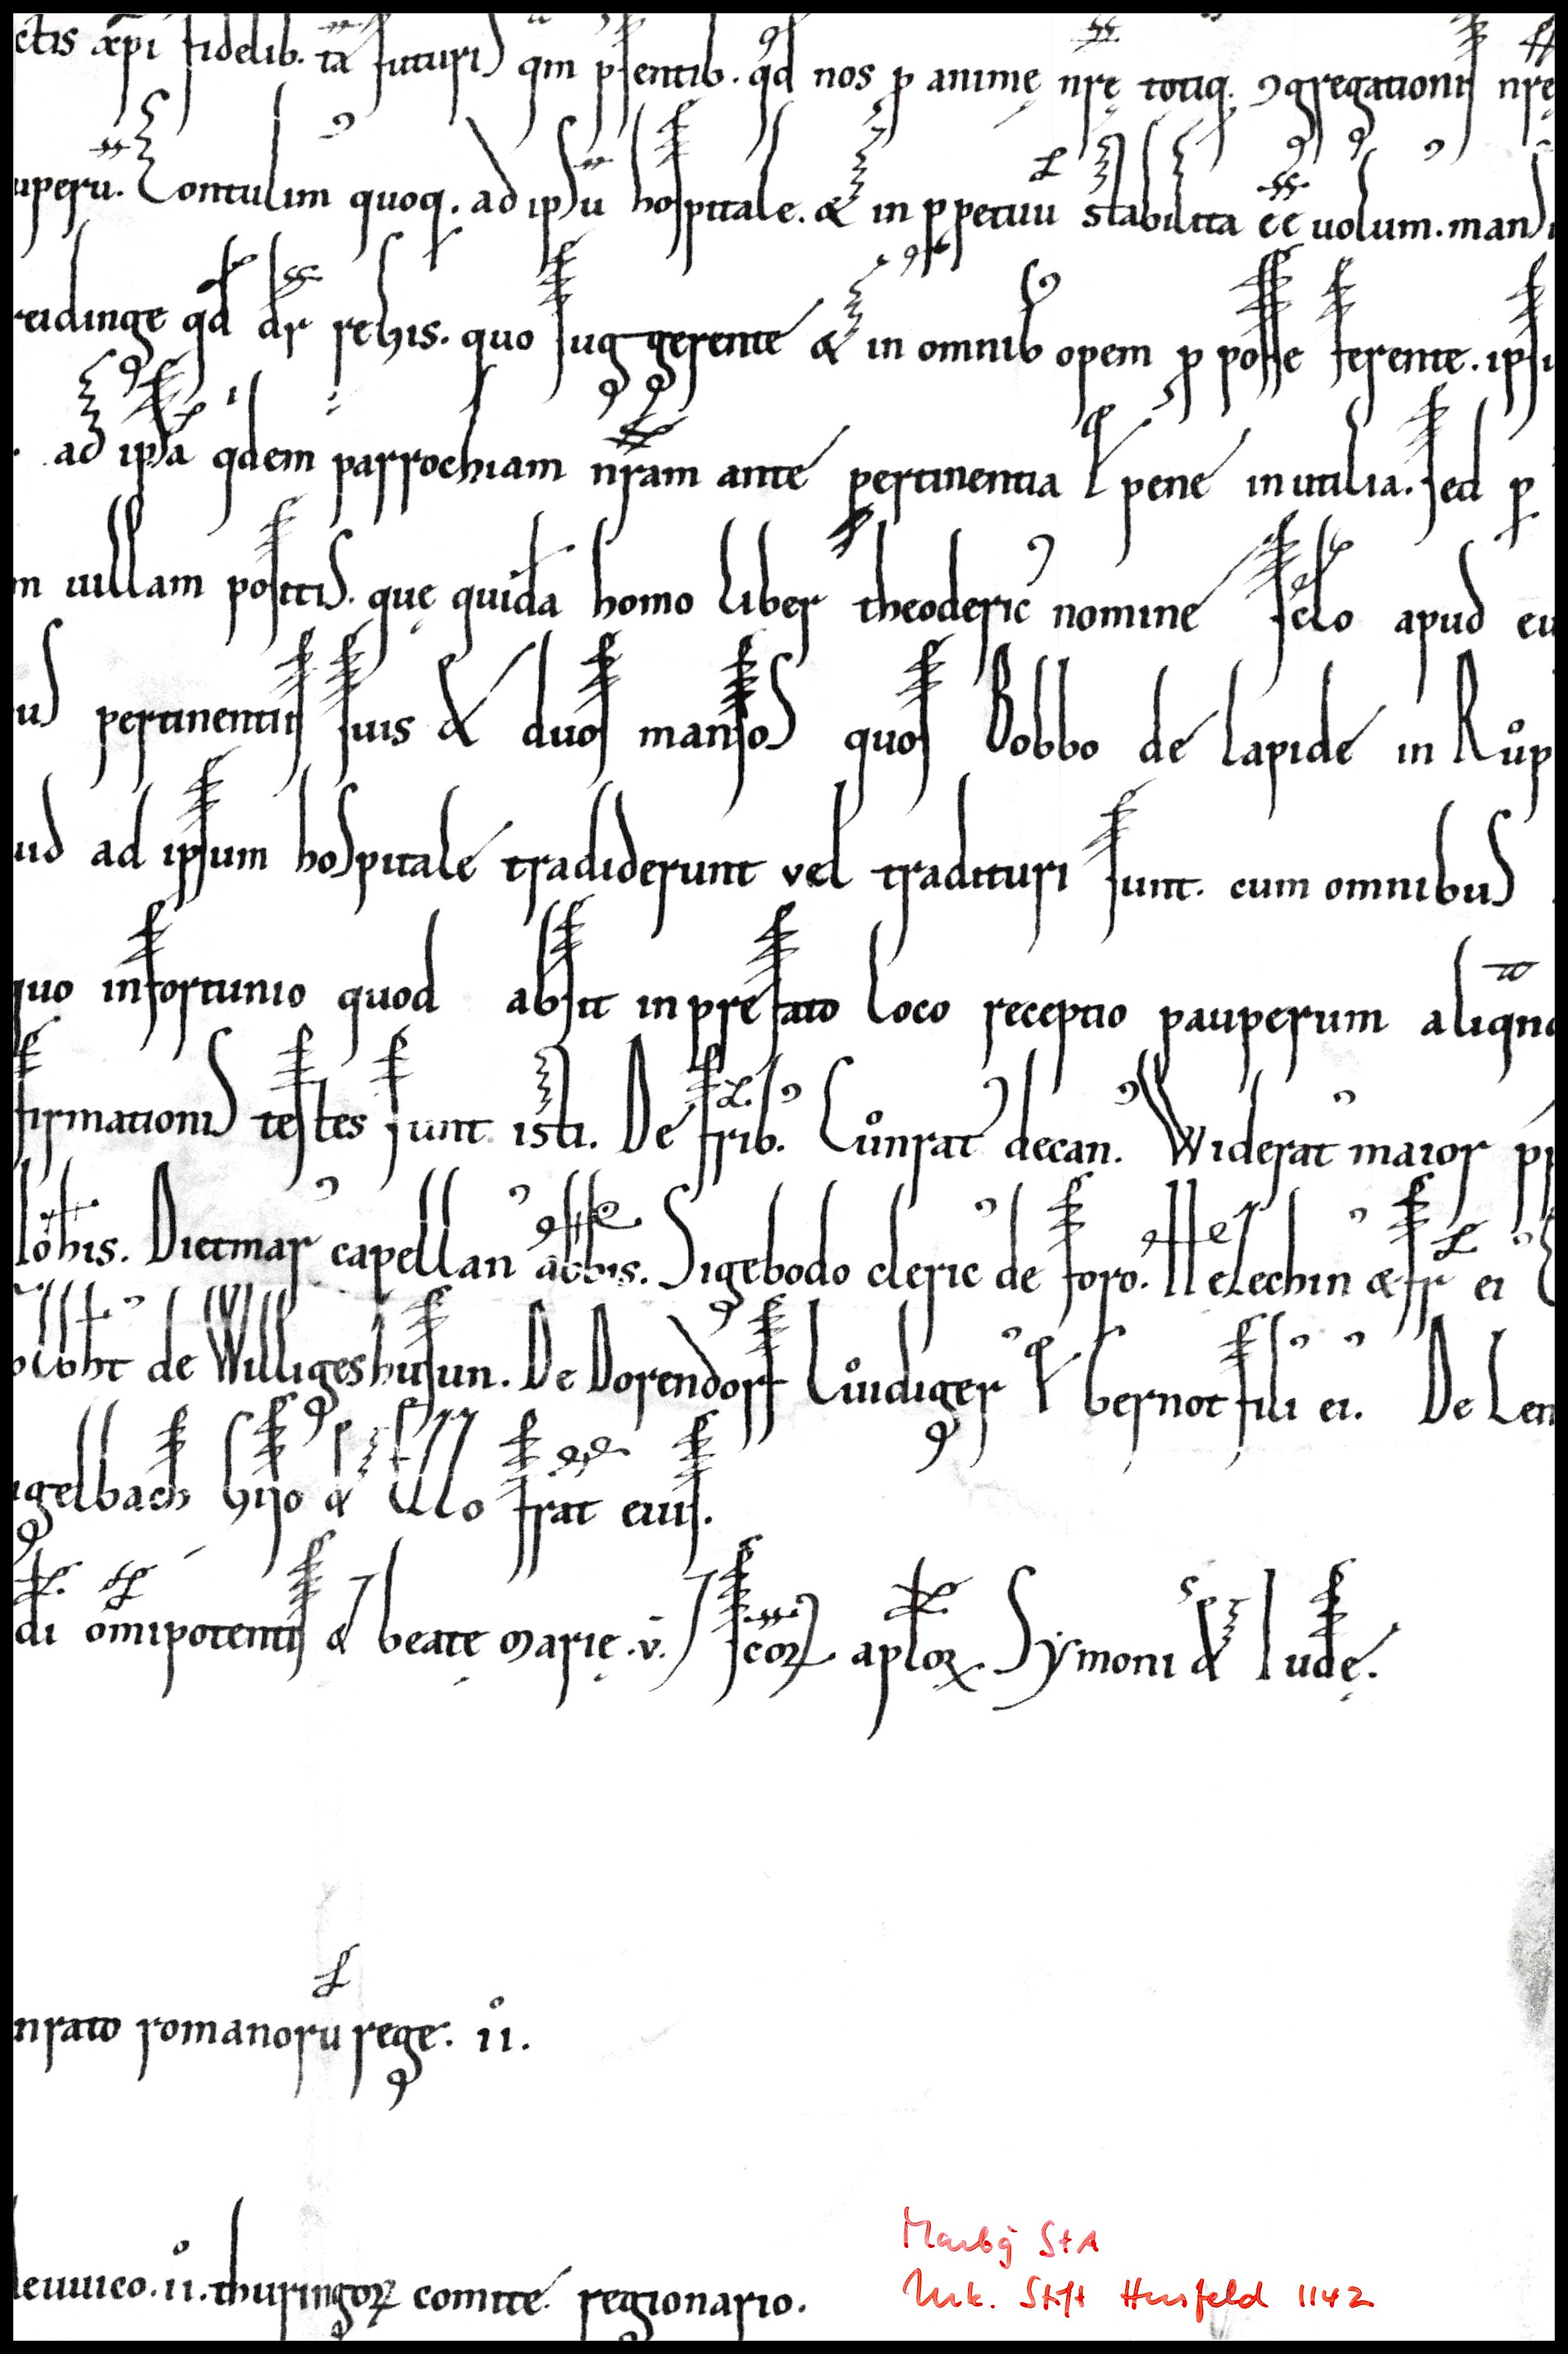 ctis æpi fidelib. tā futuris qm psentib. qd nos p animę nrę totiq. ꝯgregationis nrę
uperū. Contulim quoq. ad ipsū hospitale. & in ppetuū stabilita eē uolum. mansi
reidinge qd dr rehis. quo suggerente & in omnib opem p posse ferente. ipsi
. ad ipsā qdem parrochiam nram ante pertinentia ł pene inutilia. sed p
m uillam positis. quę quidā homo liber theoderic nomine selo apud eu
us pertinentiis suis & duos mansos quos Bobbo de lapide in Růp
ud ad ipsum hospitale tradiderunt vel tradituri sunt. cum omnibus
quo infortunio quod absit in prefato loco receptio pauperum aliqn
firmationis testes sunt isti. De frib. Cůnrat decan. Widerat maior pp
lohis. Dietmar capellan abbis. Sigebodo cleric de foro. Helechin & fr ei
de Willigeshusun. De Dorendorf Lůudiger ł bernot filii ei. De Len
gelbach hijo & Ello frat eius.
di omipotentis & beatę Marię .v. ⁊ scōꝝ aploꝝ Symoni & Iudę.
nrato romanorū rege. ii.
leuuico. ii. thuringoꝝ comite regionario.
Marbg StA
Urk. Stift Hersfeld 1142